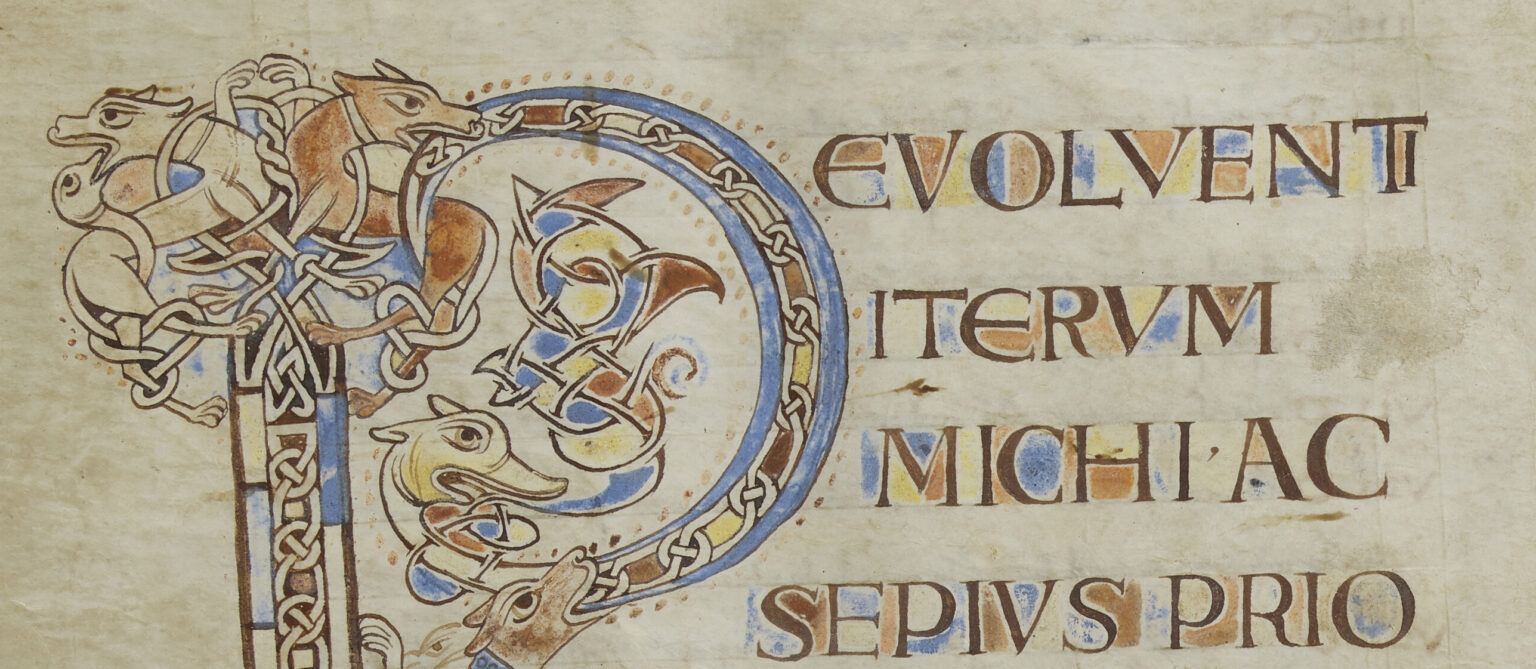 REVOLVENTI
ITERVM
MICHI · AC
SEPIVS PRIO